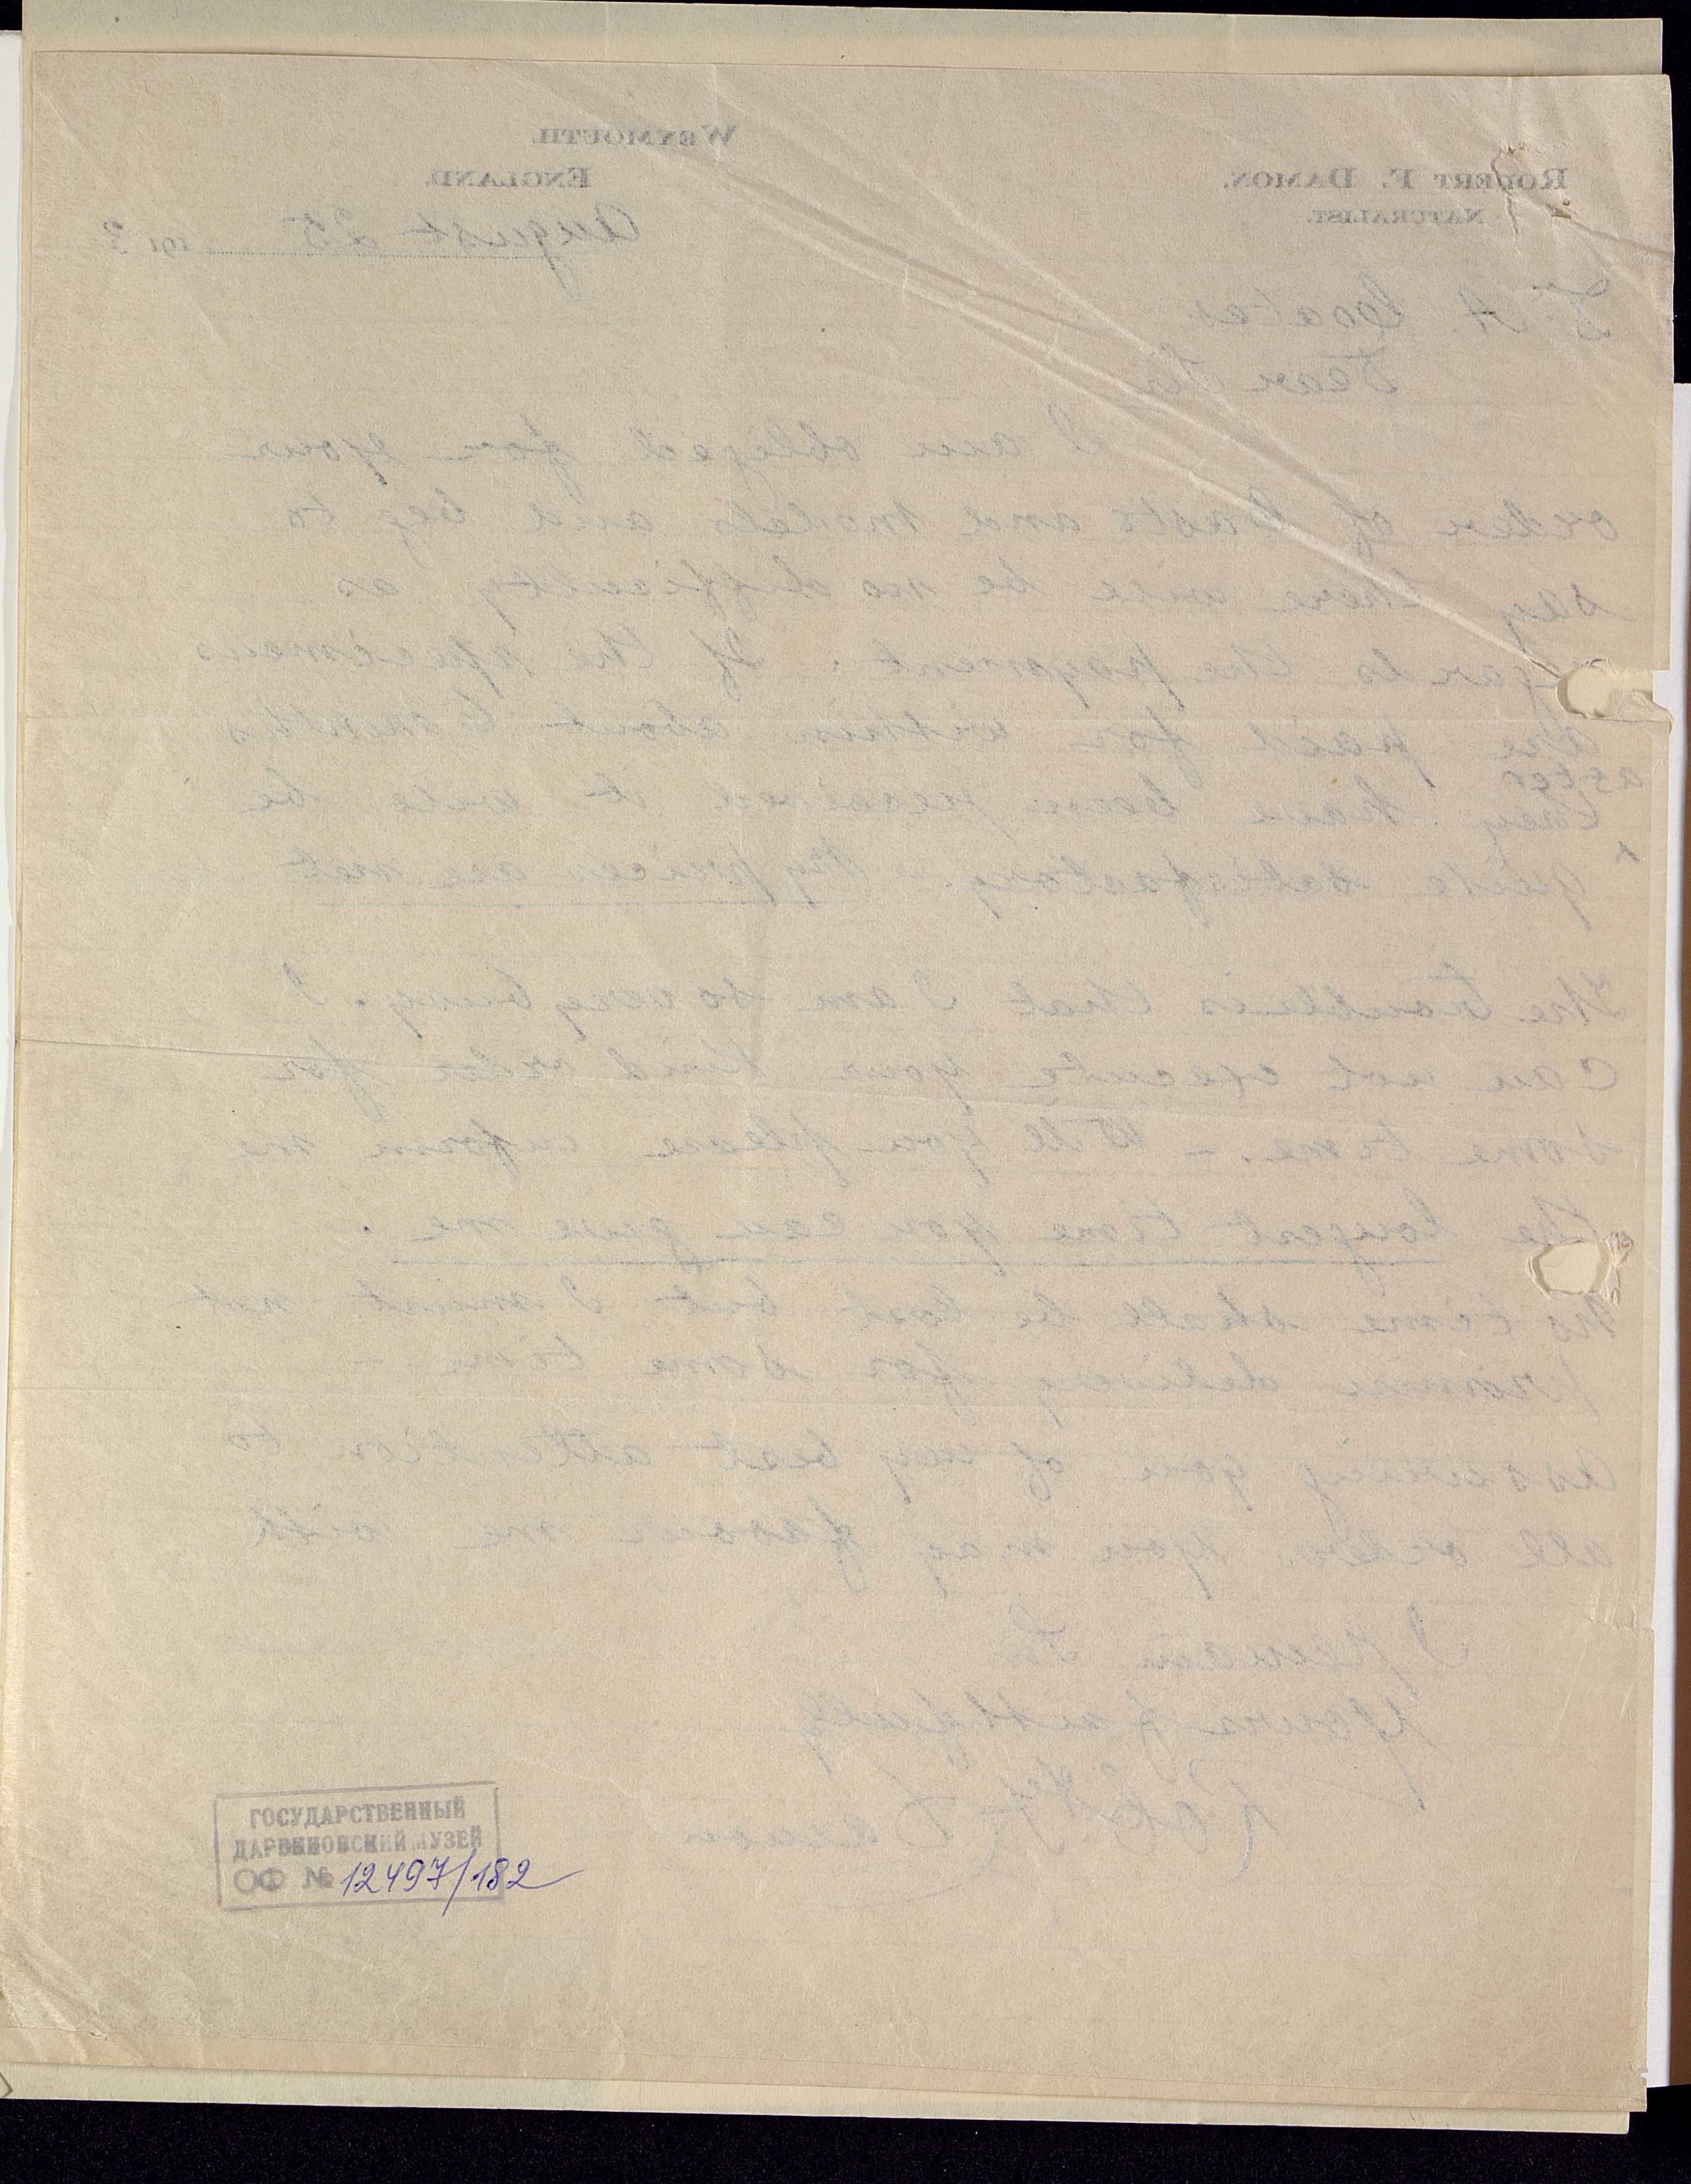 WEYMOUTH.
ENGLAND.
ROBERT F. DAMON.
NATURALIST.
August 25 1913
F. A. Coates
Dear Sir
I am obliged for your
order of casts and models and beg to
say there will be no difficulty as
regards the payment. If the specimens
are paid for within about months
after
they have been received it will be
quite satisfactory. - My prices are net
The trouble is that I am so very busy. I
can not execute your kind order for
some time. - Will you please inform me
the longest time you can give me.
No time shall be lost but I must not
promise delivery for some time -
Assuring you of my best attention to
all orders you may favour me with
I remain Sir
Yours faithfully
Robt. F. Damon
ГОСУДАРСТВЕННЫЙ
ДАРВИНОВСКИЙ МУЗЕЙ
ОФ № 12497/182